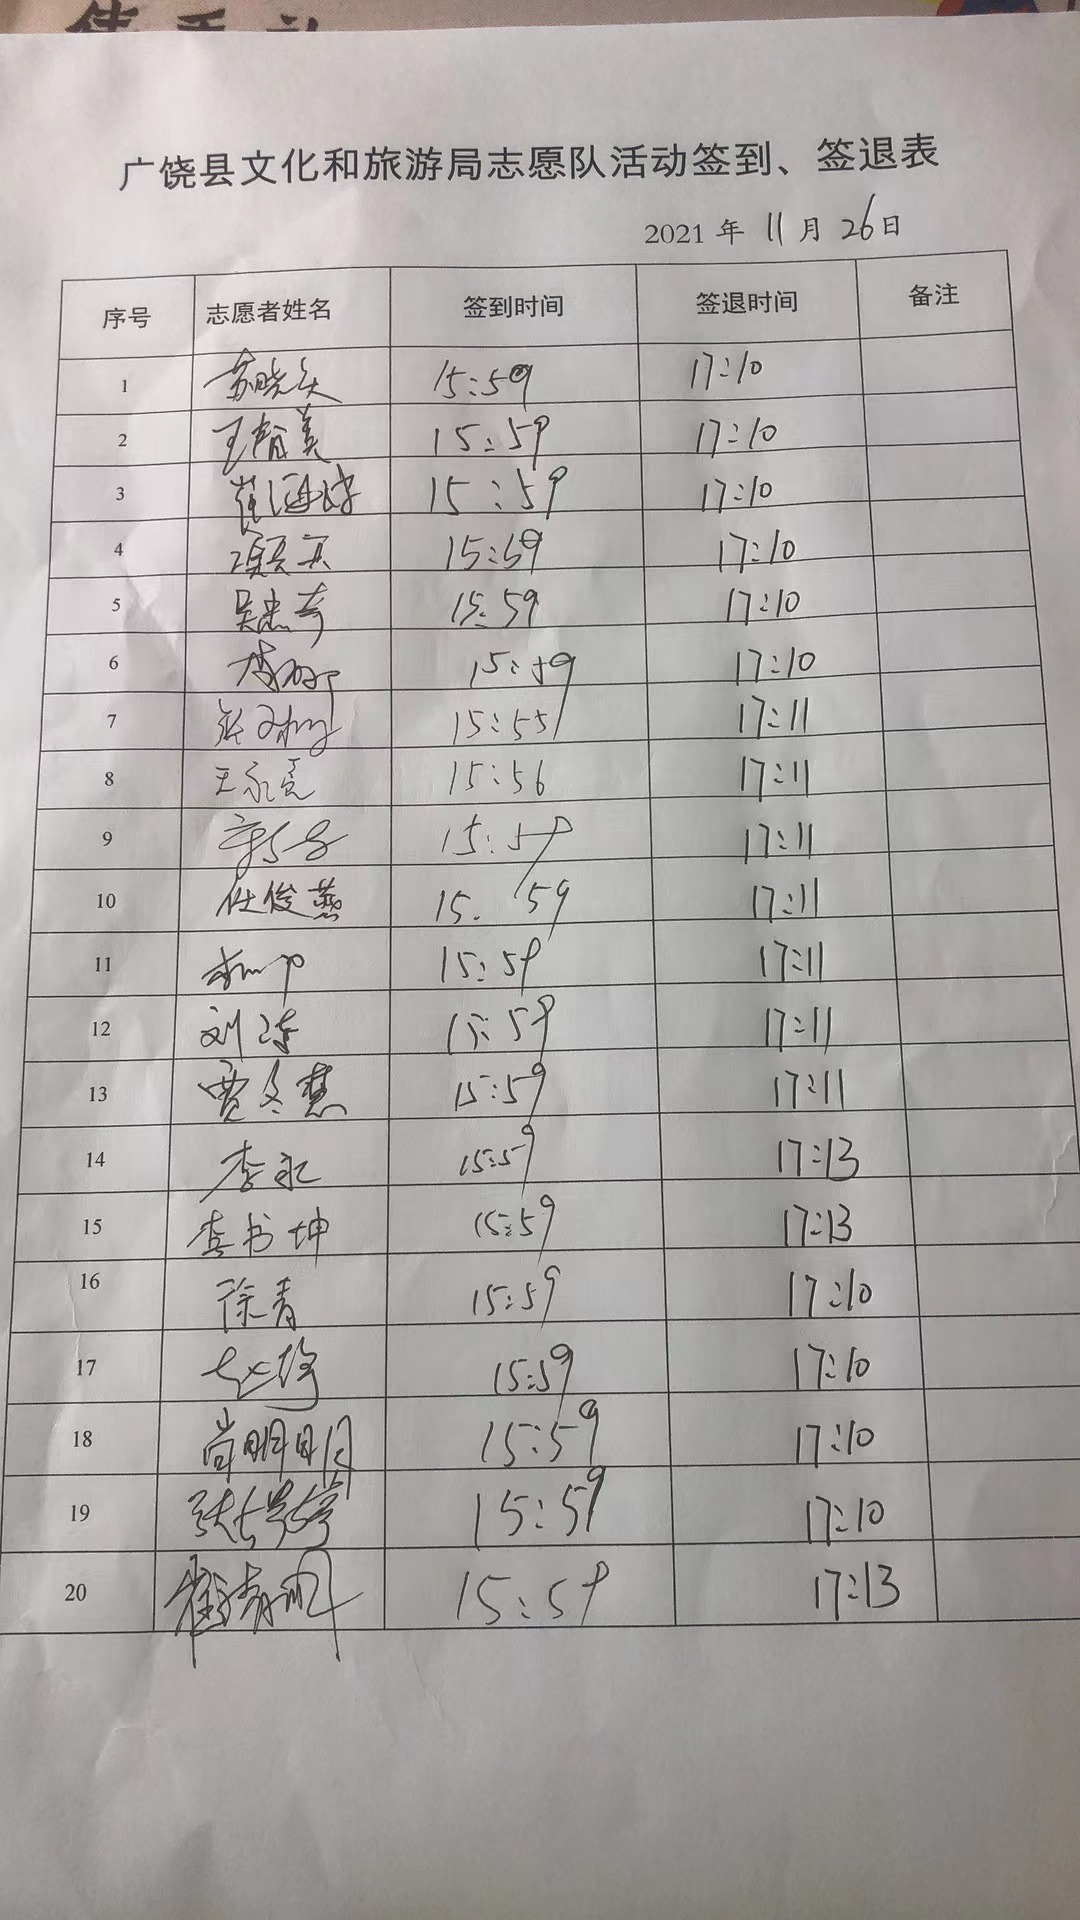 广饶县文化和旅游局志愿队活动签到、签退表
2021 年 11 月 26 日
序号 志愿者姓名 签到时间 签退时间 备注
1 15:59 17:10
2 15:59 17:10
3 15:59 17:10
4 15:59 17:10
5 吴忠奇 15:59 17:10
6 15:59 17:10
7 15:55 17:11
8 王永亮 15:56 17:11
9 15:59 17:11
10 任俊燕 15: 59 17:11
11 15:59 17:11
12 刘涛 15:59 17:11
13 贾冬慧 15:59 17:11
14 李永 15:59 17:13
15 李书坤 15:59 17:13
16 徐青 15:59 17:10
17 15:59 17:10
18 尚明明 15:59 17:10
19 15:59 17:10
20 15:59 17:13